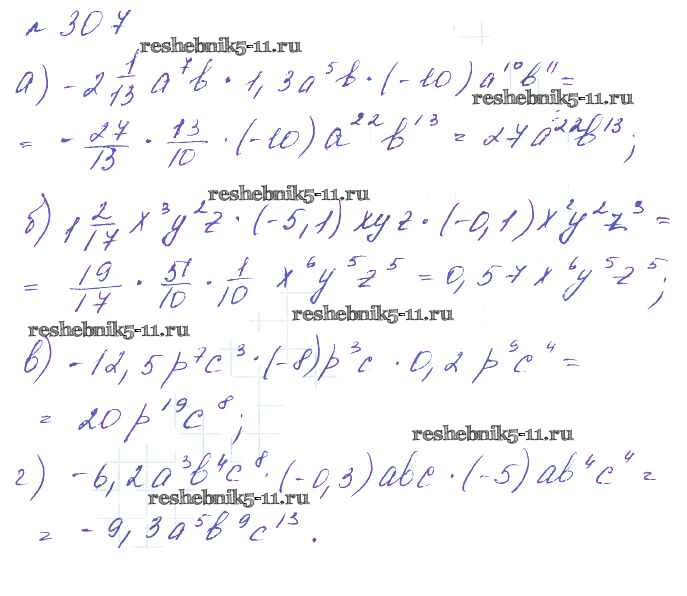 № 307
reshebnik5-11.ru
а) -2 1/13 a⁷b · 1,3a⁵b · (-10)a¹⁰b¹¹ =
reshebnik5-11.ru
= -27/13 · 13/10 · (-10)a²²b¹³ = 27a²²b¹³;
reshebnik5-11.ru
б) 1 2/17 x³y²z · (-5,1)xyz · (-0,1)x²y²z³ =
= 19/17 · 51/10 · 1/10 x⁶y⁵z⁵ = 0,57x⁶y⁵z⁵;
reshebnik5-11.ru
reshebnik5-11.ru
в) -12,5p⁷c³ · (-8)p³c · 0,2p⁹c⁴ =
= 20p¹⁹c⁸;
reshebnik5-11.ru
г) -6,2a³b⁴c⁸ · (-0,3)abc · (-5)ab⁴c⁴ =
reshebnik5-11.ru
= -9,3a⁵b⁹c¹³.